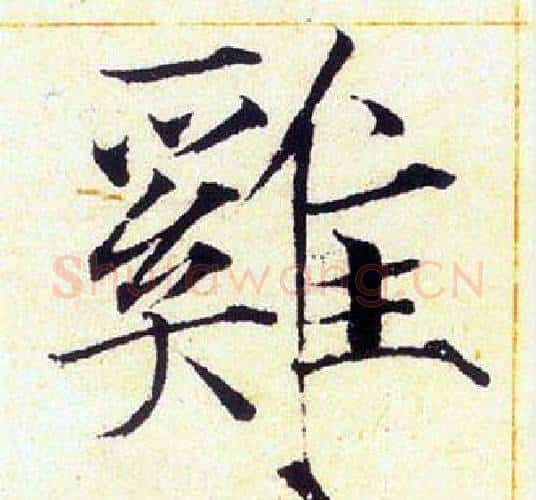 雞
Shufawang.CN